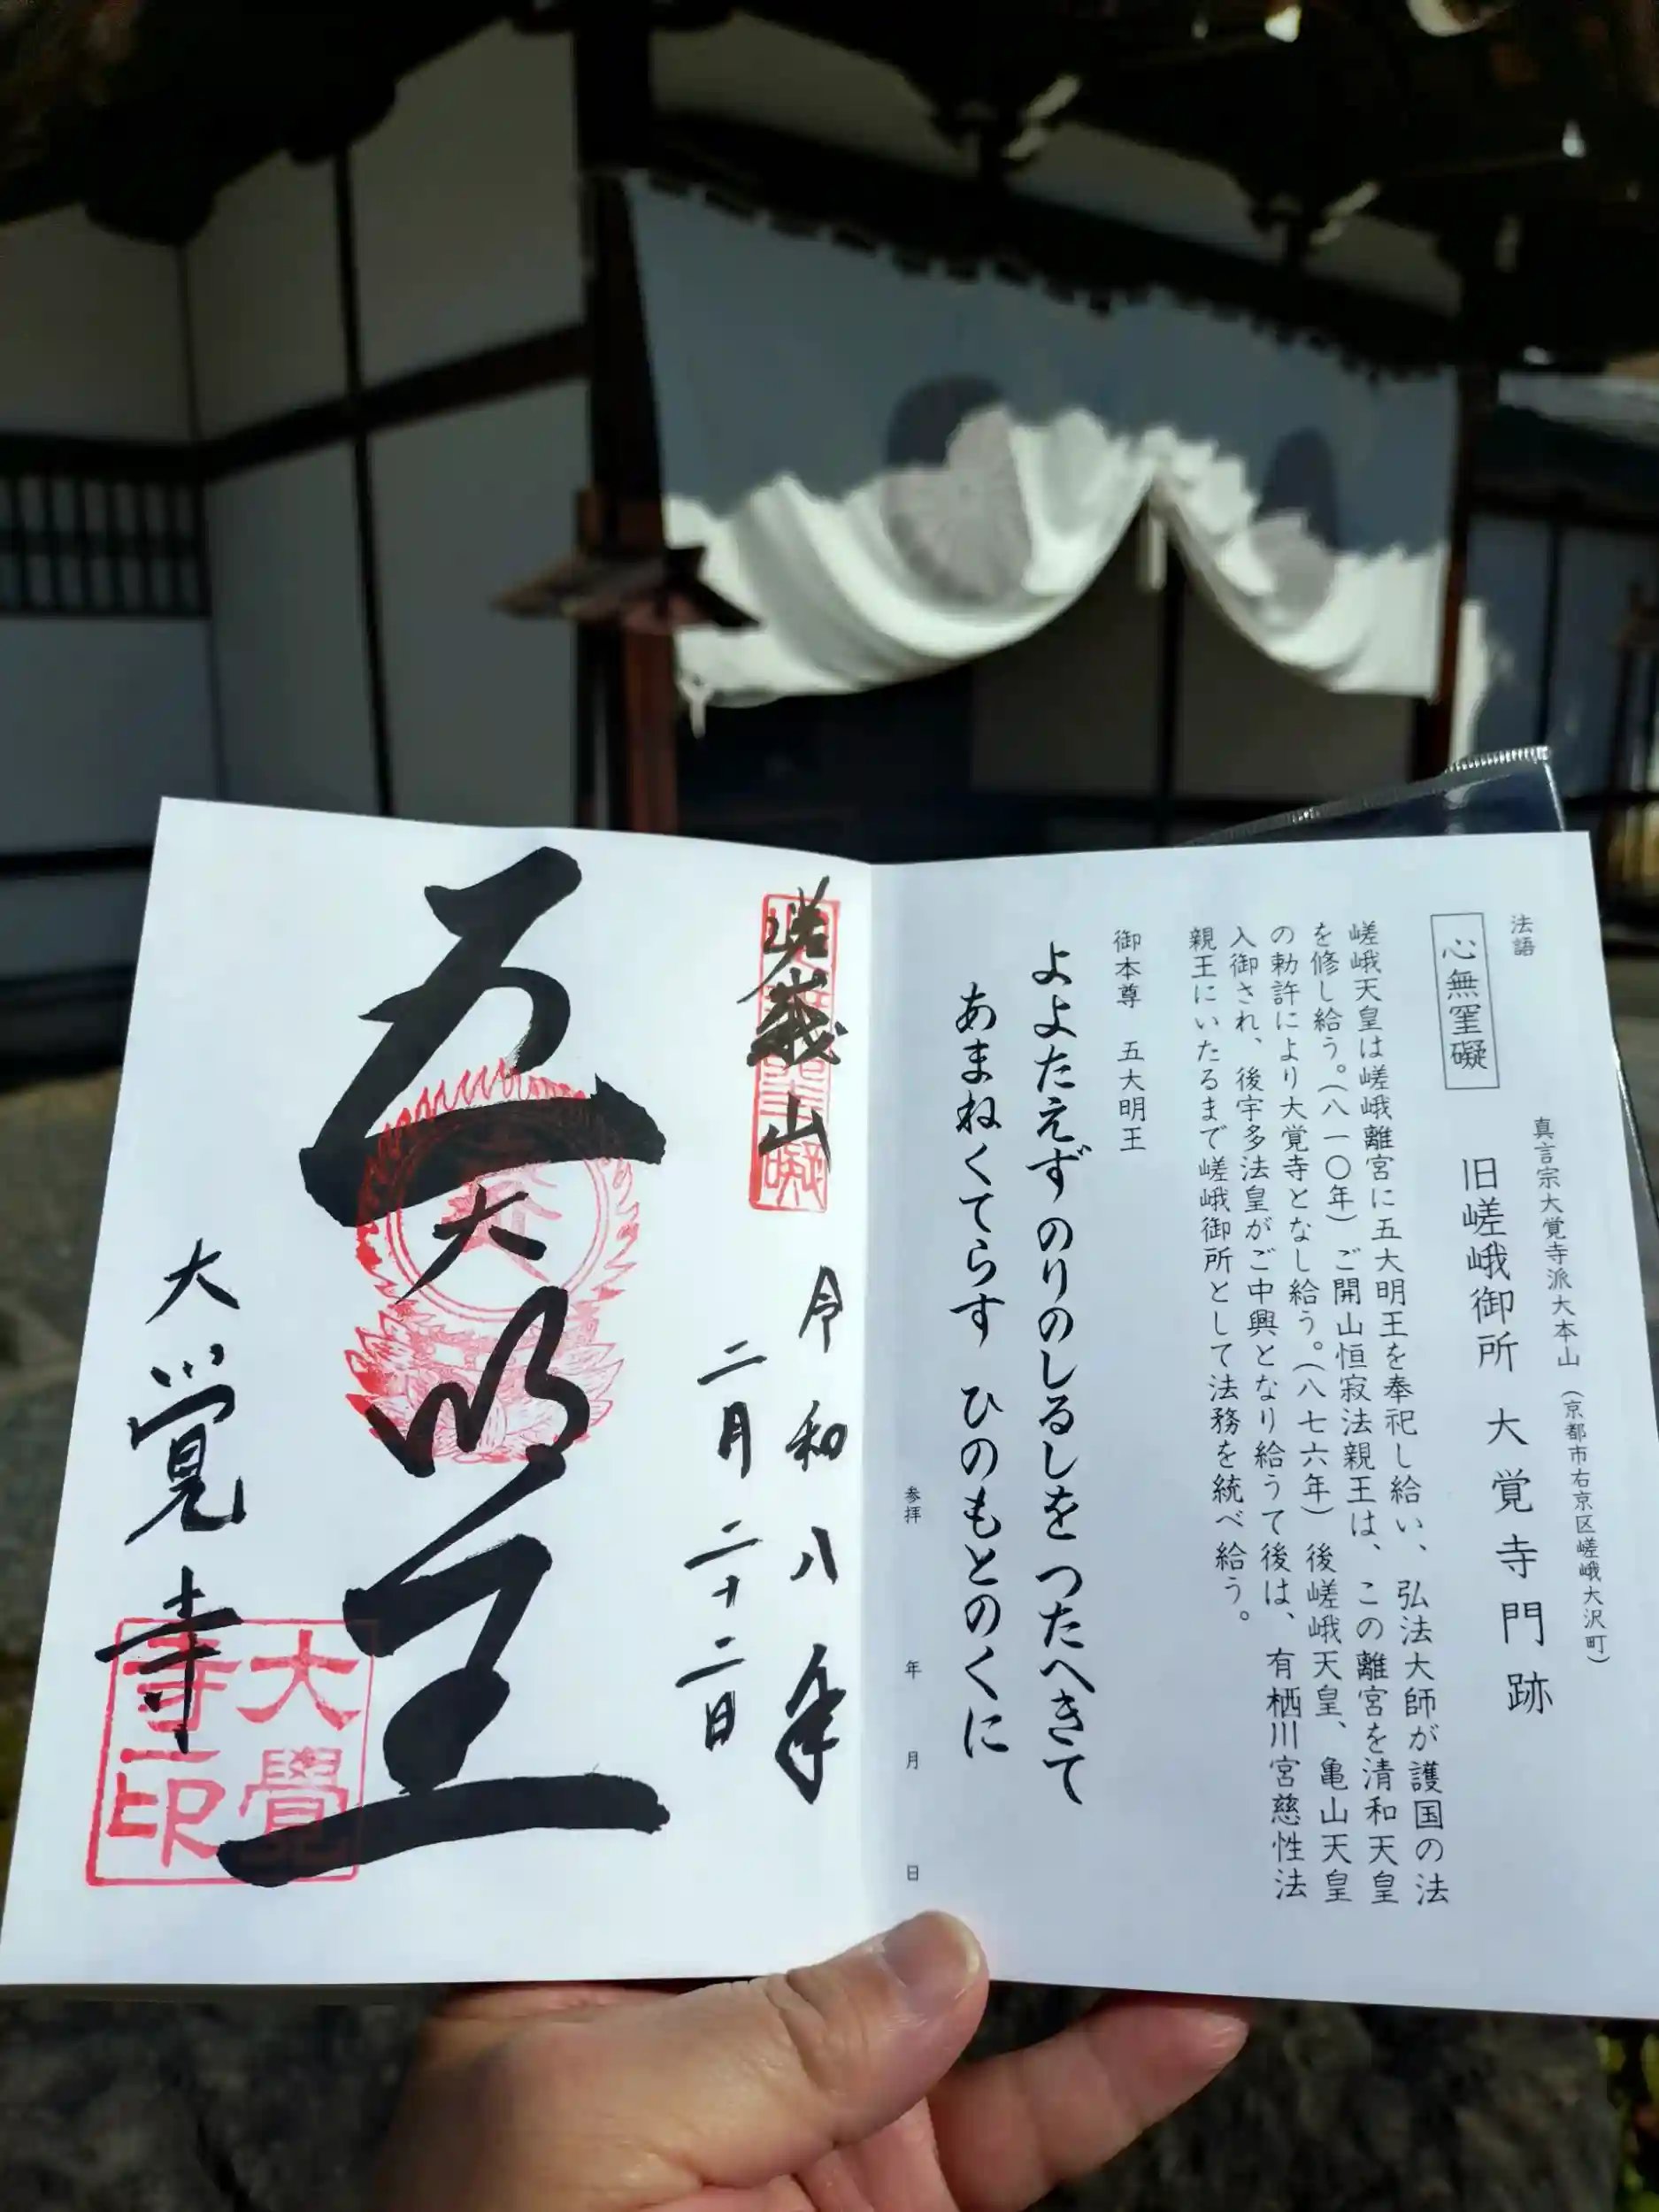 法語
心無罣礙
真言宗大覚寺派大本山(京都市右京区嵯峨大沢町)
旧嵯峨御所 大覚寺門跡
嵯峨天皇は嵯峨離宮に五大明王を奉祀し給い、弘法大師が護国の法
を修し給う。(八一〇年)ご開山恒寂法親王は、この離宮を清和天皇
の勅許により大覚寺となし給う。(八七六年)後嵯峨天皇、亀山天皇
入御され、後宇多法皇がご中興となり給うて後は、有栖川宮慈性法
親王にいたるまで嵯峨御所として法務を統べ給う。
御本尊 五大明王
よよたえず のりのしるしをつたへきて
あまねくてらす ひのもとのくに
参拝 年 月 日
嵯峨山
令和八年
二月二十二日
五大明王
大覚寺
大覺
寺印